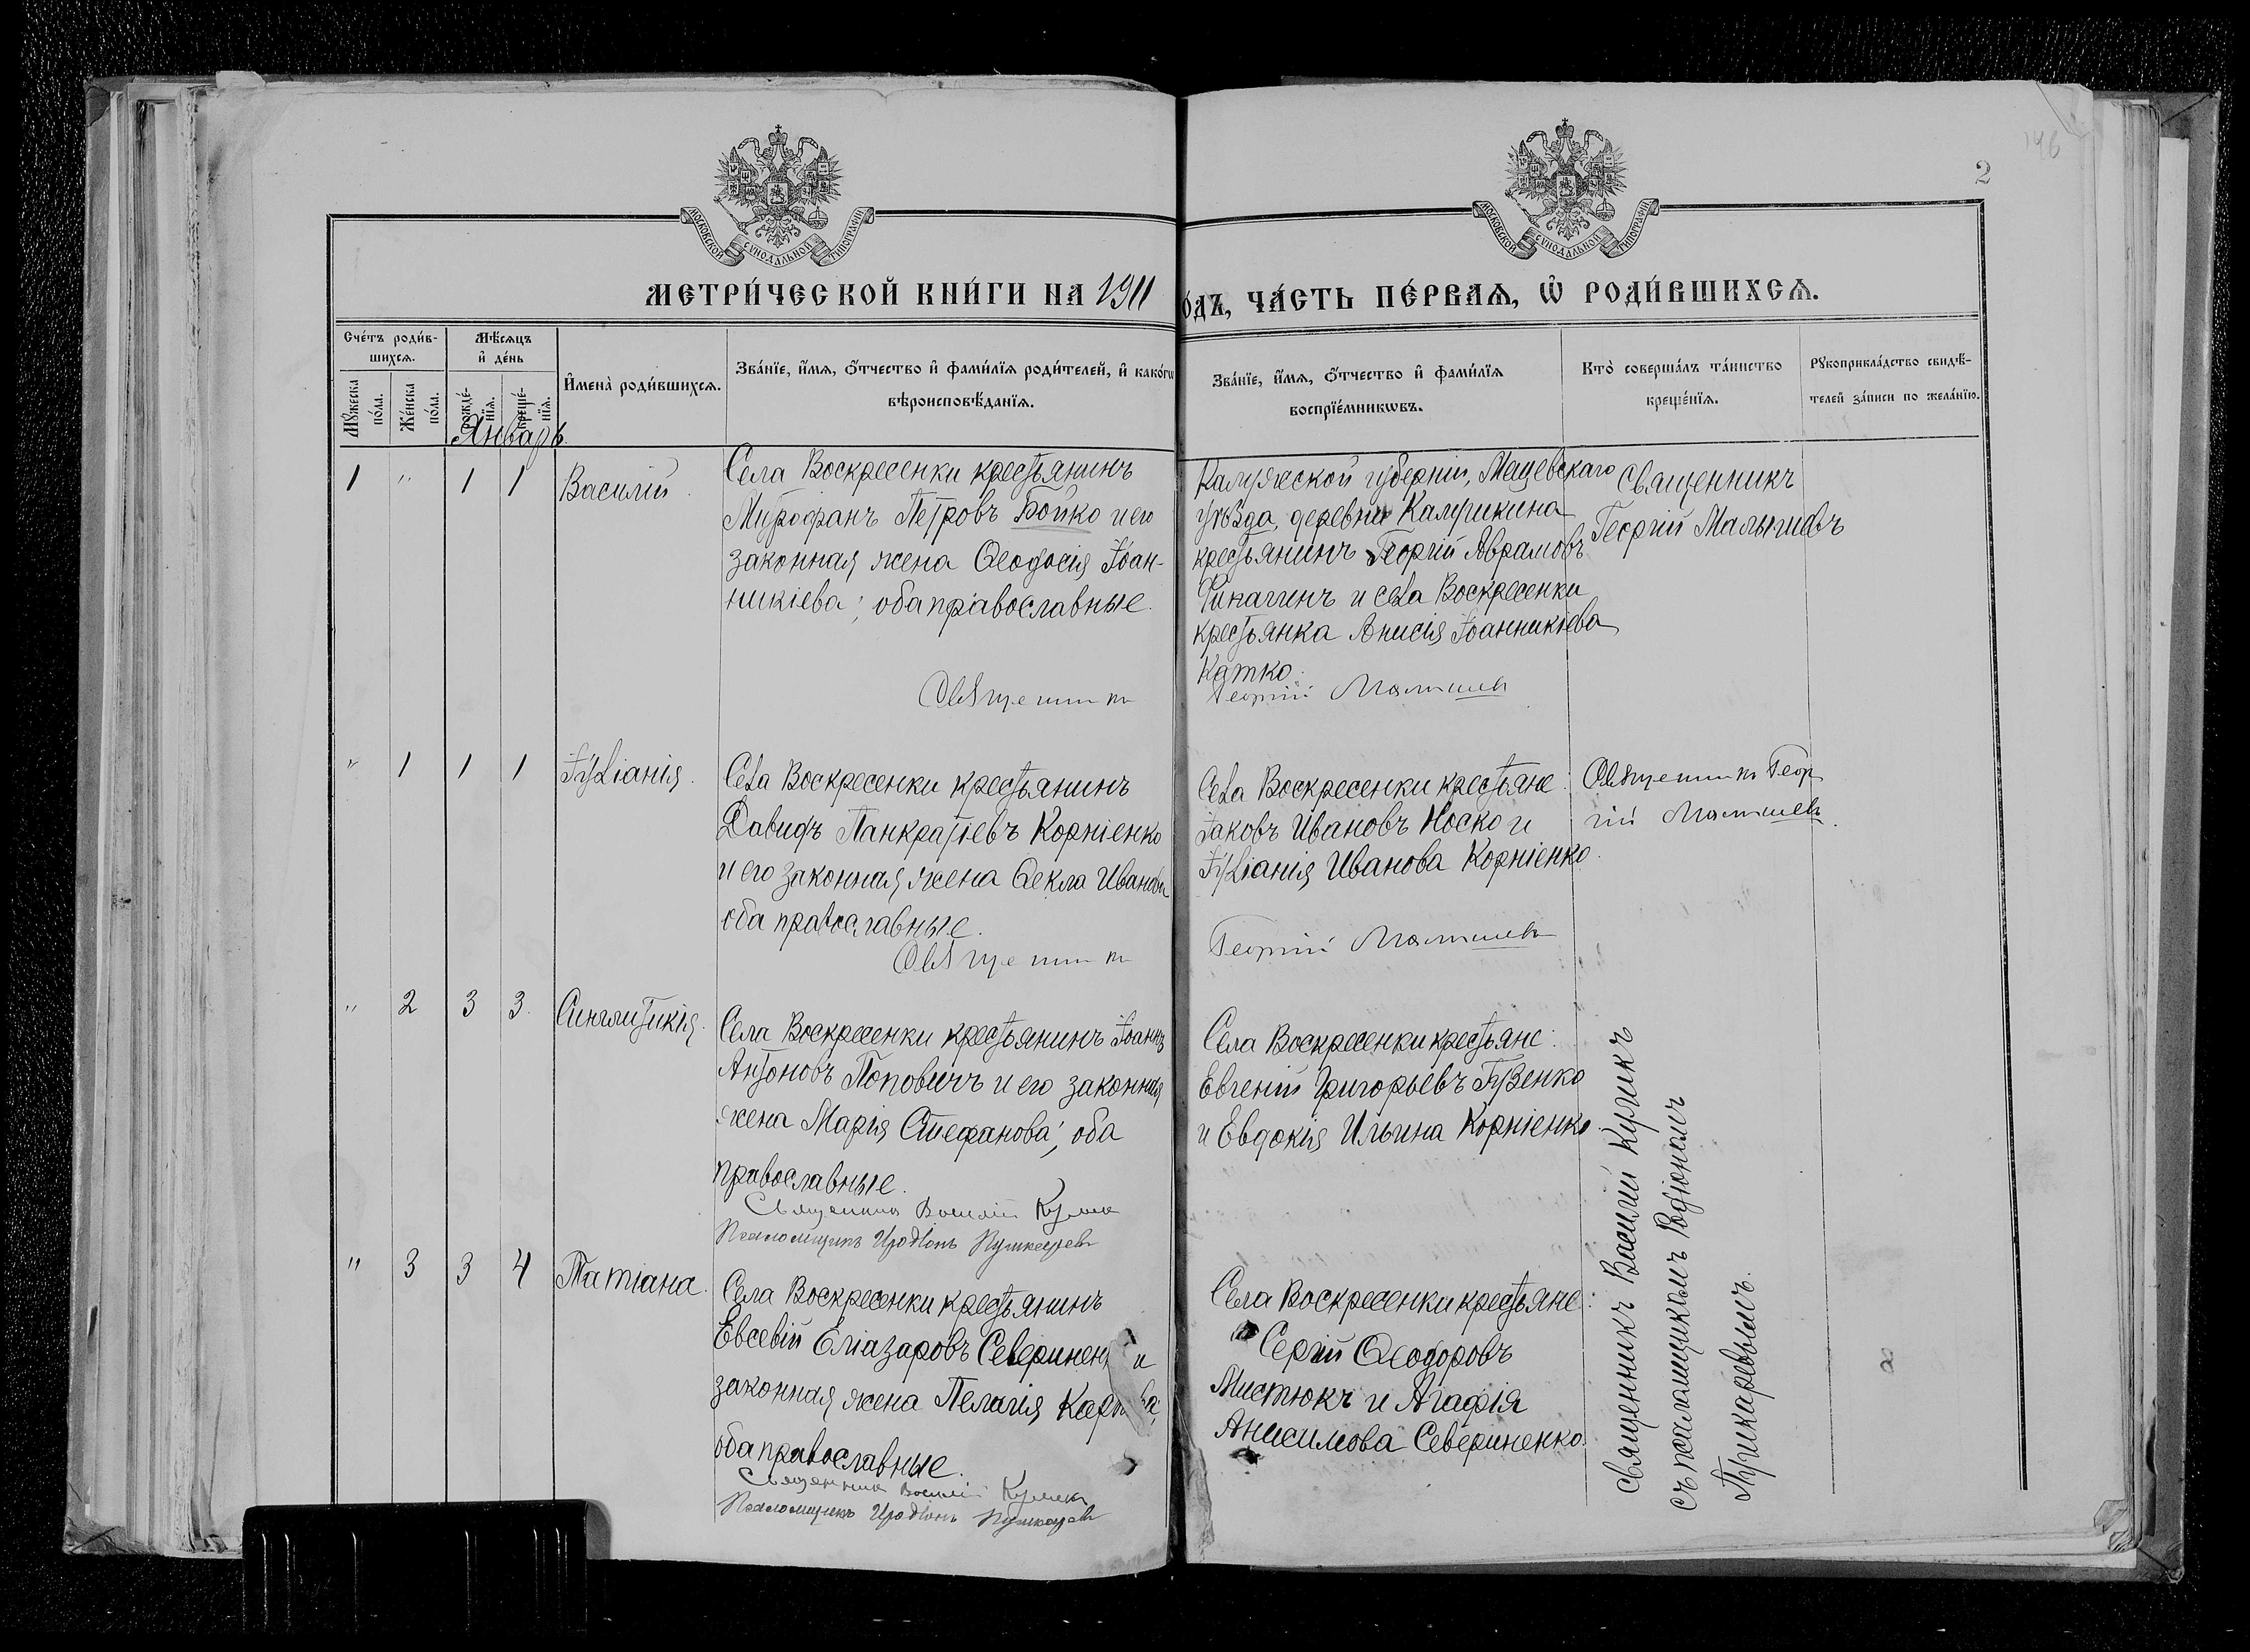 146
2
МОСКОВСКОЙ СѴНОДАЛЬНОЙ ТИПОГРАФІИ
МОСКОВСКОЙ СѴНОДАЛЬНОЙ ТИПОГРАФІИ
МЕТРИ́ЧЕСКОЙ КНИ́ГИ НА 1911
о́дъ, ЧА́СТЬ ПЕ́РВАѦ, Ѡ҆ РОДИ́ВШИХСѦ.
Сче́тъ роди́в-
шихсѧ.
Мѣ́сѧцъ
и҆ де́нь
Мꙋ́жеска
по́ла.
Же́нска
по́ла.
рожде́-
нїѧ.
креще́-
нїѧ.
И҆мена̀ роди́вшихсѧ.
Зва́нїе, и҆́мѧ, ѻ҆́тчество и҆ фами́лїѧ роди́телей, и҆ како́гѡ
вѣроисповѣ́данїѧ.
Зва́нїе, и҆́мѧ, ѻ҆́тчество и҆ фами́лїѧ
воспрїе́мникѡвъ.
Кто̀ соверша́лъ та́инство
креще́нїѧ.
Рꙋкоприкла́дство свидѣ́-
телей за́писи по жела́нїю.
Январь.
1 " 1 1 Василій.
Села Воскресенки крестьянинъ
Митрофанъ Петровъ Бойко и его
законная жена Ѳеодосія Іоан-
никіева; оба православные.
Священникъ
Калужской губерніи, Мещевскаго
уѣзда, деревни
крестьянинъ Георгій Аврамовъ
Финагинъ и села Воскресенки
крестьянка Анисія Іоанникіева
Катко.
Георгій Малышевъ
Священникъ
Георгій Малышевъ
" 1 1 1 Іуліанія.
Села Воскресенки крестьянинъ
Давидъ Панкратіевъ Корніенко
и его законная жена Ѳекла Иванова
оба православные.
Священникъ
Села Воскресенки крестьяне:
Іаковъ Ивановъ Носко и
Іуліанія Иванова Корніенко.
Георгій Малышевъ
Священникъ Геор
гій Малышевъ.
" 2 3 3. Синглитикія.
Села Воскресенки крестьянинъ Іоаннъ
Антоновъ Поповичъ и его законная
жена Марія Стефанова; оба
православные.
Священникъ Василій Кулик
Псаломщикъ Иродіонъ
Села Воскресенки крестьяне:
Евгеній Григорьевъ Гузенко
и Евдокія Ильина Корніенко.
" 3 3 4 Татіана.
Села Воскресенки крестьянинъ
Евсевій Еліазаровъ Северинен и
законная жена Пелагія
оба православные.
Священникъ Василій Куликъ
Псаломщикъ Иродіонъ
Села Воскресенки крестьяне:
Сергій Ѳеодоровъ
Мистюкъ и Агафія
Анисимова Севериненко.
Священникъ Василій Куликъ
съ псаломщикомъ Родіономъ